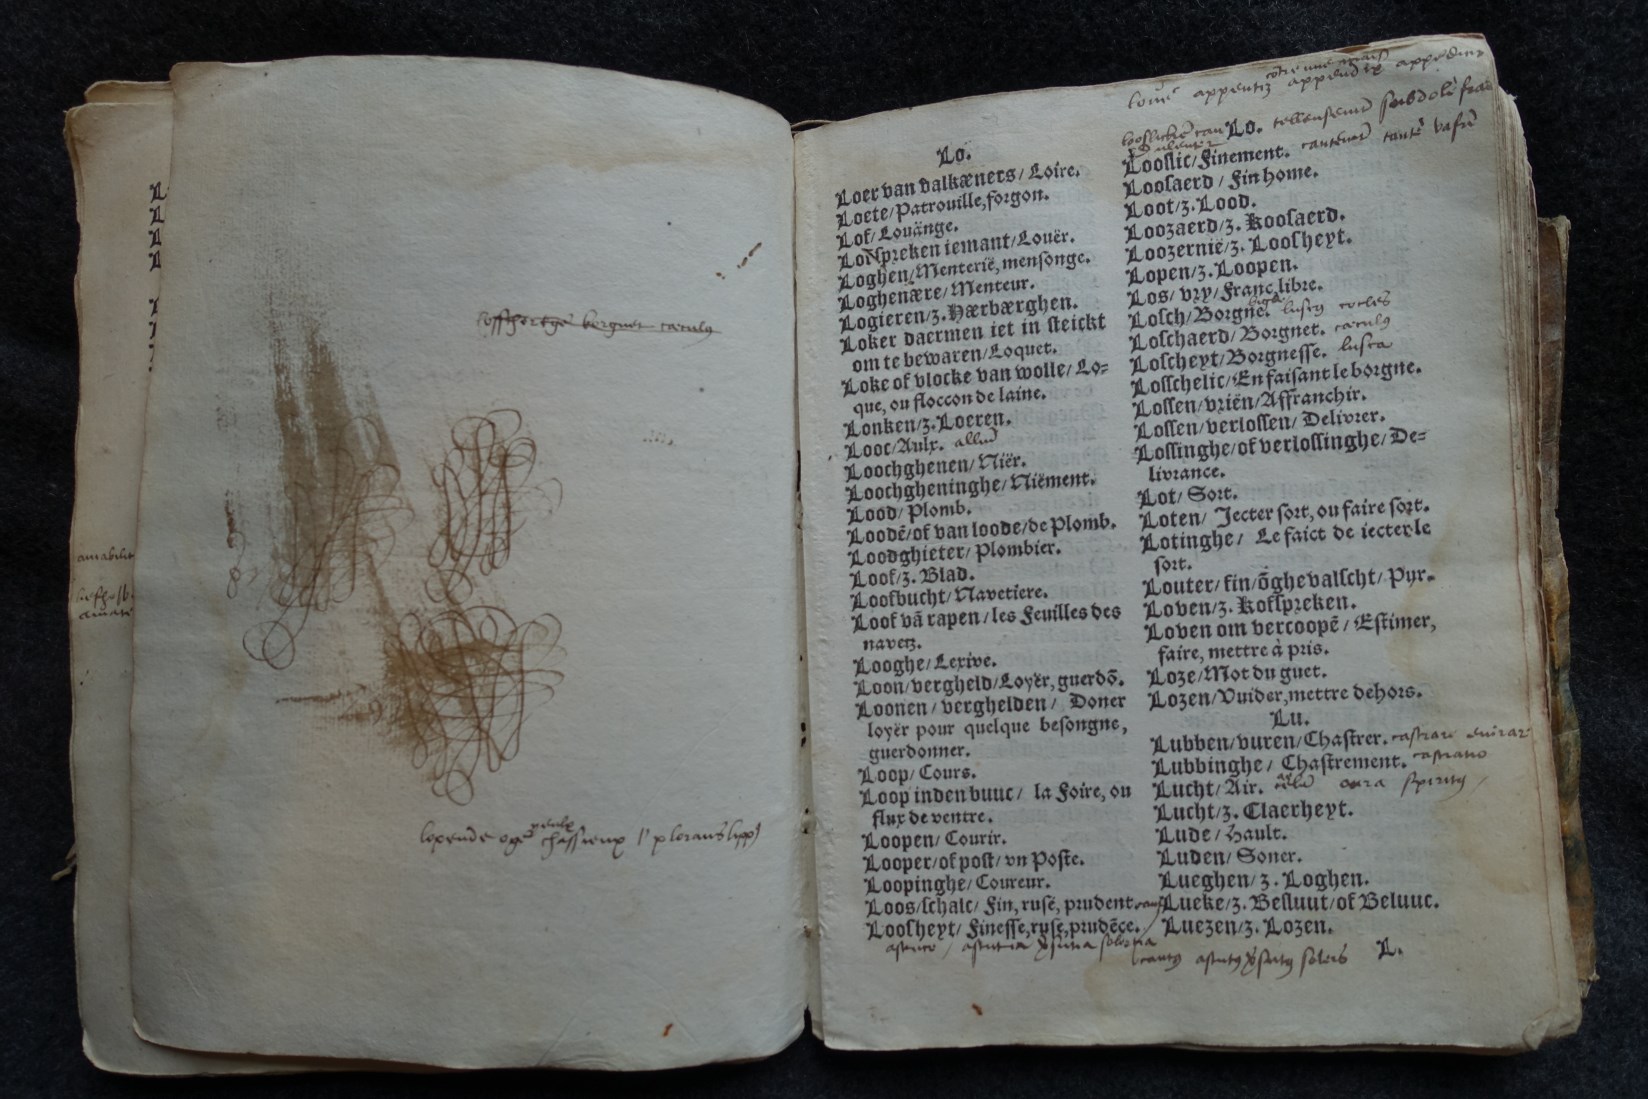 borgnet cœculus
lopende oge chassieux
yeulx
Lo.
Loer van valkæners/ Loire.
Loete/ Patrouille, forgon.
Lof/ Louänge.
Lofspreken iemant/ Louër.
Loghen/ Menterië, mensonge.
Loghenære/ Menteur.
Logieren/ z. Hærbærghen.
Loker daermen iet in steickt
om te bewaren/ Loquet.
Loke of vlocke van wolle/ Lo=
que, ou floccon de laine.
Lonken/ z. Loeren.
Looc/ Aulx. alliũ
Loochghenen/ Niër.
Loochgheninghe/ Niëment.
Lood/ Plomb.
Loodẽ/ of van loode/ de Plomb.
Loodghieter/ Plombier.
Loof/ z. Blad.
Loofbucht/ Navetiere.
Loof vã rapen/ les Feuilles des
navetz.
Looghe/ Lexive.
Loon/ vergheld/ Loyër, guerdõ.
Loonen/ verghelden/ Doner
loyër pour quelque besongne,
guerdonner.
Loop/ Cours.
Loop inden buuc/ la Foire, ou
flux de ventre.
Loopen/ Courir.
Looper/ of post/ vn Poste.
Loopinghe/ Coureur.
Loos/ schalc/ Fin, rusé, prudent.
Loosheyt/ Finesse, ruse, prudẽce.
astutia
appentiz appendix
Lo.
Looslic/ Finement.
Loosaerd/ Fin home.
Loot/ z. Lood.
Loozaerd/ z. Koosaerd.
Loozernië/ z. Loosheyt.
Lopen/ z. Loopen.
Los/ vry/ Franc, libre.
Losch/ Borgne. luscus cocles
Loschaerd/ Borgnet. cœculus
Loscheyt/ Borgnesse. lusca
Losschelic/ En faisant le borgne.
Lossen/ vriën/ Affranchir.
Lossen/ verlossen/ Delivrer.
Lossinghe/ of verlossinghe/ De=
livrance.
Lot/ Sort.
Loten/ Jecter sort, ou faire sort.
Lotinghe/ Le faict de iecter le
sort.
Louter/ fin/ õghevalscht/ Pur.
Loven/ z. Kofspreken.
Loven om vercoopẽ/ Estimer,
faire, mettre à pris.
Loze/ Mot du guet.
Lozen/ Vuider, mettre dehors.
Lu.
Lubben/ vuren/ Chastrer. castrare
Lubbinghe/ Chastrement. castratio
Lucht/ Air. aura spiritus
Lucht/ z. Claerheyt.
Lude/ Hault.
Luden/ Soner.
Lueghen/ z. Loghen.
Lueke/ z. Besluut/ of Beluuc.
Luezen/ z. Lozen.
L.